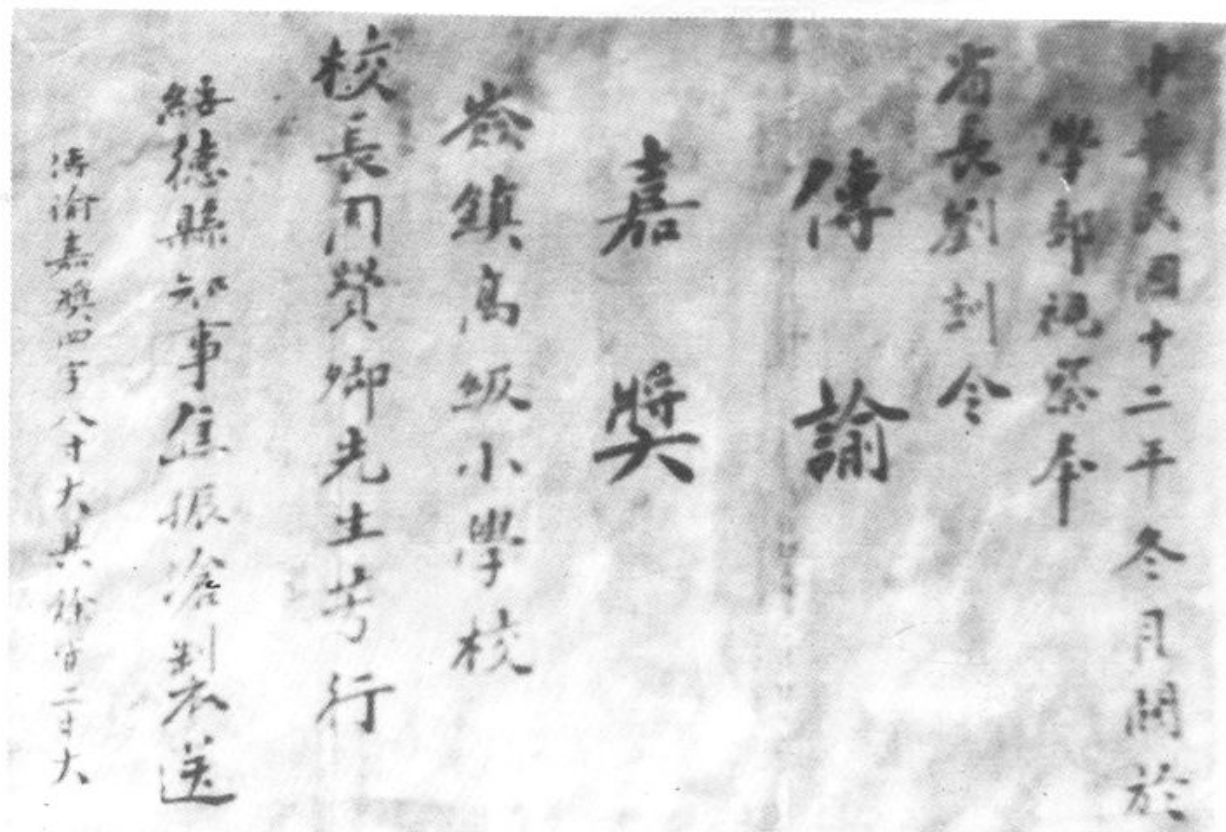 中華民國十二年冬月關於
學部視察奉
省長劉訓令
傳諭
嘉獎
鎮高級小學校
校長周贊卿先生芳行
綏德縣知事焦振滄製送
傳諭嘉獎四字八寸大其餘皆二寸大